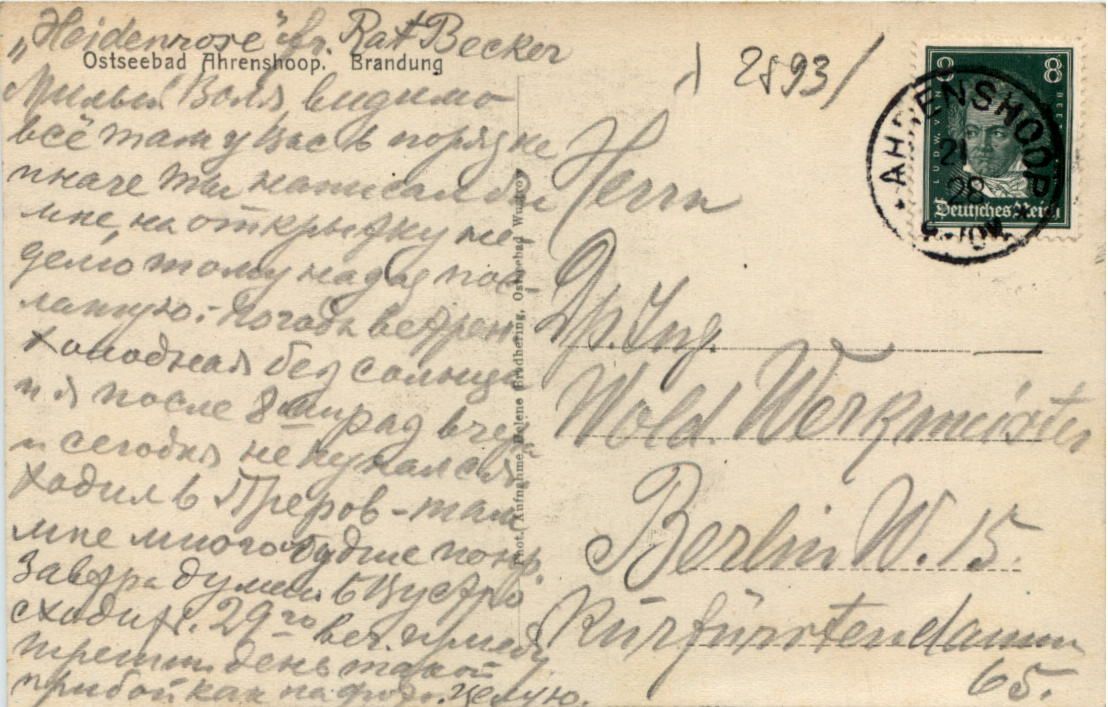 „Heidenrose" fr. Rat Becker
Ostseebad Ahrenshoop. Brandung
Милый Воля видимо
всё там у Вас в порядке
иначе ты написал бы
мне, на открытку не-
делю тому назад пос-
ланную. Погода ветрен
холодная без солнца
и я после 8 град вчера
и сегодня не купался
ходил в Преров - там
мне много
Завтра думаю в Вустро
сходить. 29го веч. приеду
третий день такой
прибой как на фото. Целую.
Phot. Aufnahme Helene Brodhering, Ostseebad Wustrow
2893/
Herrn
Dr. Ing.
Wold. Werkmeister
Berlin W. 15.
Kurfürstendamm
65.
8 8
LUDW. V.
Deutsches Reich
AHRENSHOOP
21
28